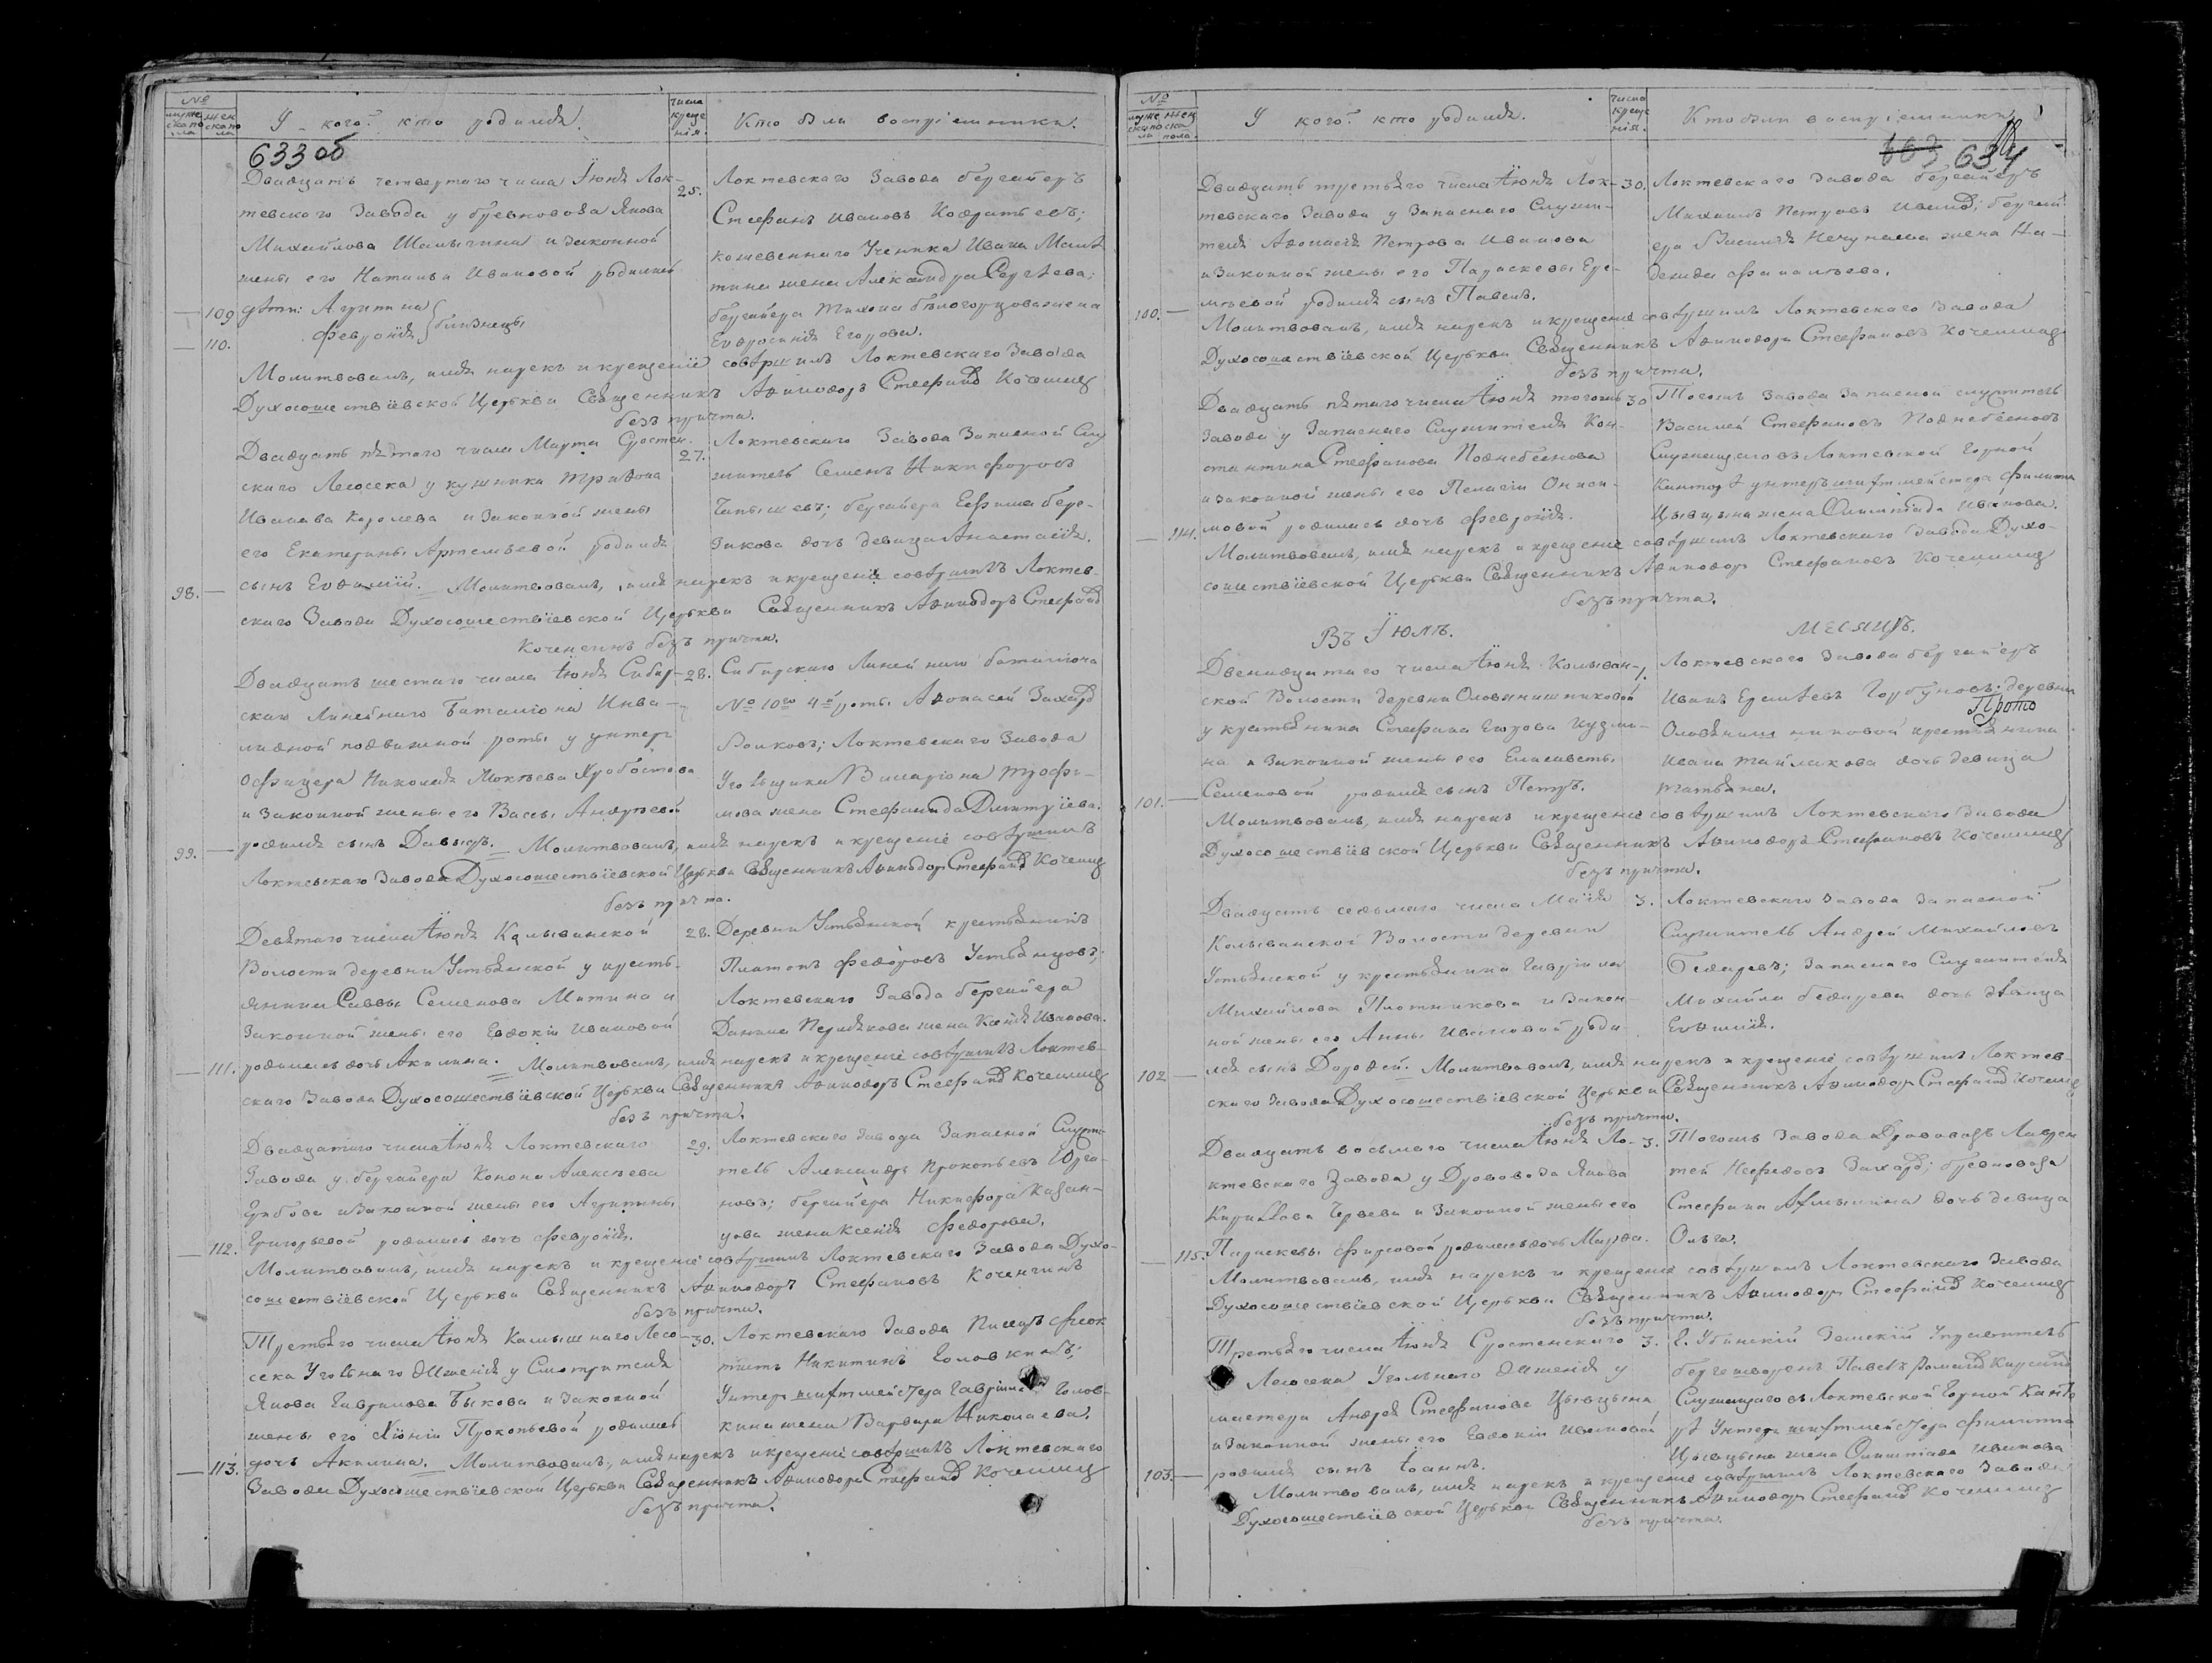 №
мужескаго пола
женскаго пола
У кого кто родился.
числа крещенія.
Кто были воспріемники.
633 об
Двадцать четвертого числа Іюня Лок-
тевского Завода у бревновоза Якова
Михайлова Шалыгина и законной
жены его Натальи Ивановой родились
109 дѣти: Агрипина
110. Февронія } близнецы
25.
Локтевскаго Завода бергаіеръ
Стефанъ Ивановъ
кошевеннаго Ученика Ивана
тина жена Александра Сергѣева;
бергайера Тихона Бѣлогорцова жена
Евфросинія Егорова.
Молитвовалъ, имя нарекъ и крещеніе совѣршилъ Локтевскаго Завода
Духосошествіевской Церкви Священникъ Аѳинодоръ Стефановъ Коченгинъ
безъ причта.
Двадцать пятаго числа Марта Сростен-
скаго Лесосека у куженка Трифона
Иванова Королева и Законной жены
его Екатерины Артемьевой родился
27.
Локтевскаго Завода Запасной Слу
житель Семенъ Никифоровъ
Чапышевъ; бергайера Ефима Бере-
зикова дочь девица Анастасія.
98. сынъ Евѳимій. Молитвовалъ, имя нарекъ и крещеніе совѣршилъ Локтев-
скаго Завода Духосошествіевской Церкви Священникъ Аѳинодоръ Стефановъ
Коченгинъ безъ причта.
Двадцать шестаго числа Іюня Сибир-
скаго Линейнаго Баталіона Инва-
лидной подвижной роты у унтеръ
Офицера Николая Мокѣева Хробостова
и Законной жены его Вассы Андреевой
28.
Сибирскаго Линейнаго баталіона
№ 10го 4й роты Аѳонасей Захаровъ
Волковъ; Локтевскаго Завода
Угольщика Виларіона Трофи-
мова жена Стефанида Дмитріева.
99. родился сынъ Давыдъ. Молитвовалъ, имя нарекъ и крещеніе совѣршилъ
Локтевскаго Завода Духосошествіевской Церкви Священникъ Аѳинодоръ Стефановъ Коченгинъ
безъ причта.
Девятаго числа Іюня Колыванской
Волости деревни Устьянской у кресть-
янина Саввы Семенова Митина и
Законной жены его Евдокіи Ивановой
28.
Деревни Устьянской крестьянинъ
Платонъ Федоровъ Устьянцовъ;
Локтевскаго Завода бергайера
Данила жена Ксенія Иванова.
111. родилась дочь Акилина. Молитвовалъ, имя нарекъ и крещеніе совѣршилъ Локтев-
скаго Завода Духосошествіевской Церкви Священникъ Аѳинодоръ Стефановъ Коченгинъ
безъ причта.
Двадцатаго числа Іюня Локтевскаго
Завода у бергайера Конона Алексѣева
Грибова и Законной жены его Агрипины
112. Григорьевой родилась дочь Февронія.
29.
Локтевскаго Завода Запасной Служи
тель Александръ Прокопьевъ Юрга-
новъ; бергайера Никифора Казан-
цова жена Ксенія Федорова.
Молитвовалъ, имя нарекъ и крещеніе совѣршилъ Локтевскаго Завода Духо-
сошествіевской Церкви Священникъ Аѳинодоръ Стефановъ Коченгинъ
безъ причта.
Третьяго числа Іюня Камышнаго Лесо-
сека Угольнаго Жженія у Смотрителя
Якова Гаврилова Быкова и Законной
жены его Хіоніи Прокопьевой родилась
30.
Локтевскаго Завода Писецъ Феок
тистъ Никитинъ Головкинъ;
Унтеръ шихтмейстера Гавріила Голов-
кина жена Варвара Николаева.
113. дочь Акилина. Молитвовалъ, имя нарекъ и крещеніе совѣршилъ Локтевскаго
Завода Духосошествіевской Церкви Священникъ Аѳинодоръ Стефановъ Коченгинъ
безъ причта.
№
мужескаго пола
женскаго пола
У кого кто родился.
числа крещенія.
Кто были воспріемники
663 634
Двадцать третьяго числа Іюня Лок-
тевскаго Завода у Запаснаго Служи-
теля Аѳонасія Петрова Иванова
и Законной жены его Параскевы Ере-
100. меевой родился сынъ Павелъ.
30.
Локтевскаго Завода бергайеръ
Михаилъ Петровъ Ивановъ; бергай-
ера Василія Нечунаева жена На-
дежда
Молитвовалъ, имя нарекъ и крещеніе совѣршилъ Локтевскаго Завода
Духосошествіевской Церкви Священникъ Аѳинодоръ Стефановъ Коченгинъ
безъ причта.
Двадцать пятаго числа Іюня тогожъ
Завода у Запаснаго Служителя Кон-
стантина Стефанова Поднебеснова
и законной жены его Пелагіи Ониси-
114. мовой родилась дочь Февронія.
30
Тогожъ Завода Запасной служитель
Василей Стефановъ Поднебесновъ
Служащаго въ Локтевской Горной
Канторѣ унтеръ шихтмейстера Филипа
Цывцына жена Олимпіада Иванова.
Молитвовалъ, имя нарекъ и крещеніе совѣршилъ Локтевскаго Завода Духо-
сошествіевской Церкви Священникъ Аѳинодоръ Стефановъ Коченгинъ
безъ причта.
Въ Іюлѣ. месяцѣ.
Двенадцатаго числа Іюня Колыван-
ской Волости деревни Оловянишниковой
у крестьянина Стефана Егорова Кузми-
на и Законной жены его Елисаветы
101. Семеновой родился сынъ Петръ.
1.
Локтевскаго Завода бергаіеръ
Иванъ Ермѣевъ Горбуновъ; деревни
Прото
Оловянишниковой крестьянина
Ивана Тайлакова дочь девица
Татьяна.
Молитвовалъ, имя нарекъ и крещеніе совѣршилъ Локтевскаго Завода
Духосошествіевской Церкви Священникъ Аѳинодоръ Стефановъ Коченгинъ
безъ причта.
Двадцать седьмаго числа Маія
Колыванской Волости деревни
Устьянской у крестьянина Гавріила
Михайлова Плотникова и Закон-
ной жены его Анны Ивановой роди-
3.
Локтевскаго Завода Запасной
Служитель Андрей Михайловъ
Бедаревъ; Запаснаго Служителя
Михайла Бедарева дочь дѣвица
Евѳимія.
102 лся сынъ Дороѳей. Молитвовалъ, имя нарекъ и крещеніе совѣршилъ Локтев-
скаго Завода Духосошествіевской Церкви Священникъ Аѳинодоръ Стефановъ Коченгинъ
безъ причта.
Двадцать восьмаго числа Іюня Ло-
ктевскаго Завода у Дрововоза Якова
Кирилова Червева и Законной жены его
115. Параскевы Фирсовой родилась дочь Марѳа.
3.
Тогожъ Завода Дрововозъ Лаврен
тей Нефедовъ Захаровъ; бревновоза
Стефана дочь девица
Ольга.
Молитвовалъ, имя нарекъ и крещеніе совѣршилъ Локтевскаго Завода
Духосошествіевской Церкви Священникъ Аѳинодоръ Стефановъ Коченгинъ
безъ причта.
Третьяго числа Іюня Сростенскаго
Лесосека Угольнаго Жженія у
мастера Андрея Стефанова Цывцына
и Законной жены его Евдокіи Ивановой
103. родился сынъ Іоаннъ.
3.
Г. Убинскій Земскій Управитель
бергешворенъ Павелъ
Служащаго въ Локтевской Горной Канто
рѣ Унтеръ шихтмейстера Филиппа
Цывцына жена Олимпіада Иванова
Молитвовалъ, имя нарекъ и крещеніе совѣршилъ Локтевскаго Завода
Духосошествіевской Церкви Священникъ Аѳинодоръ Стефановъ Коченгинъ
безъ причта.